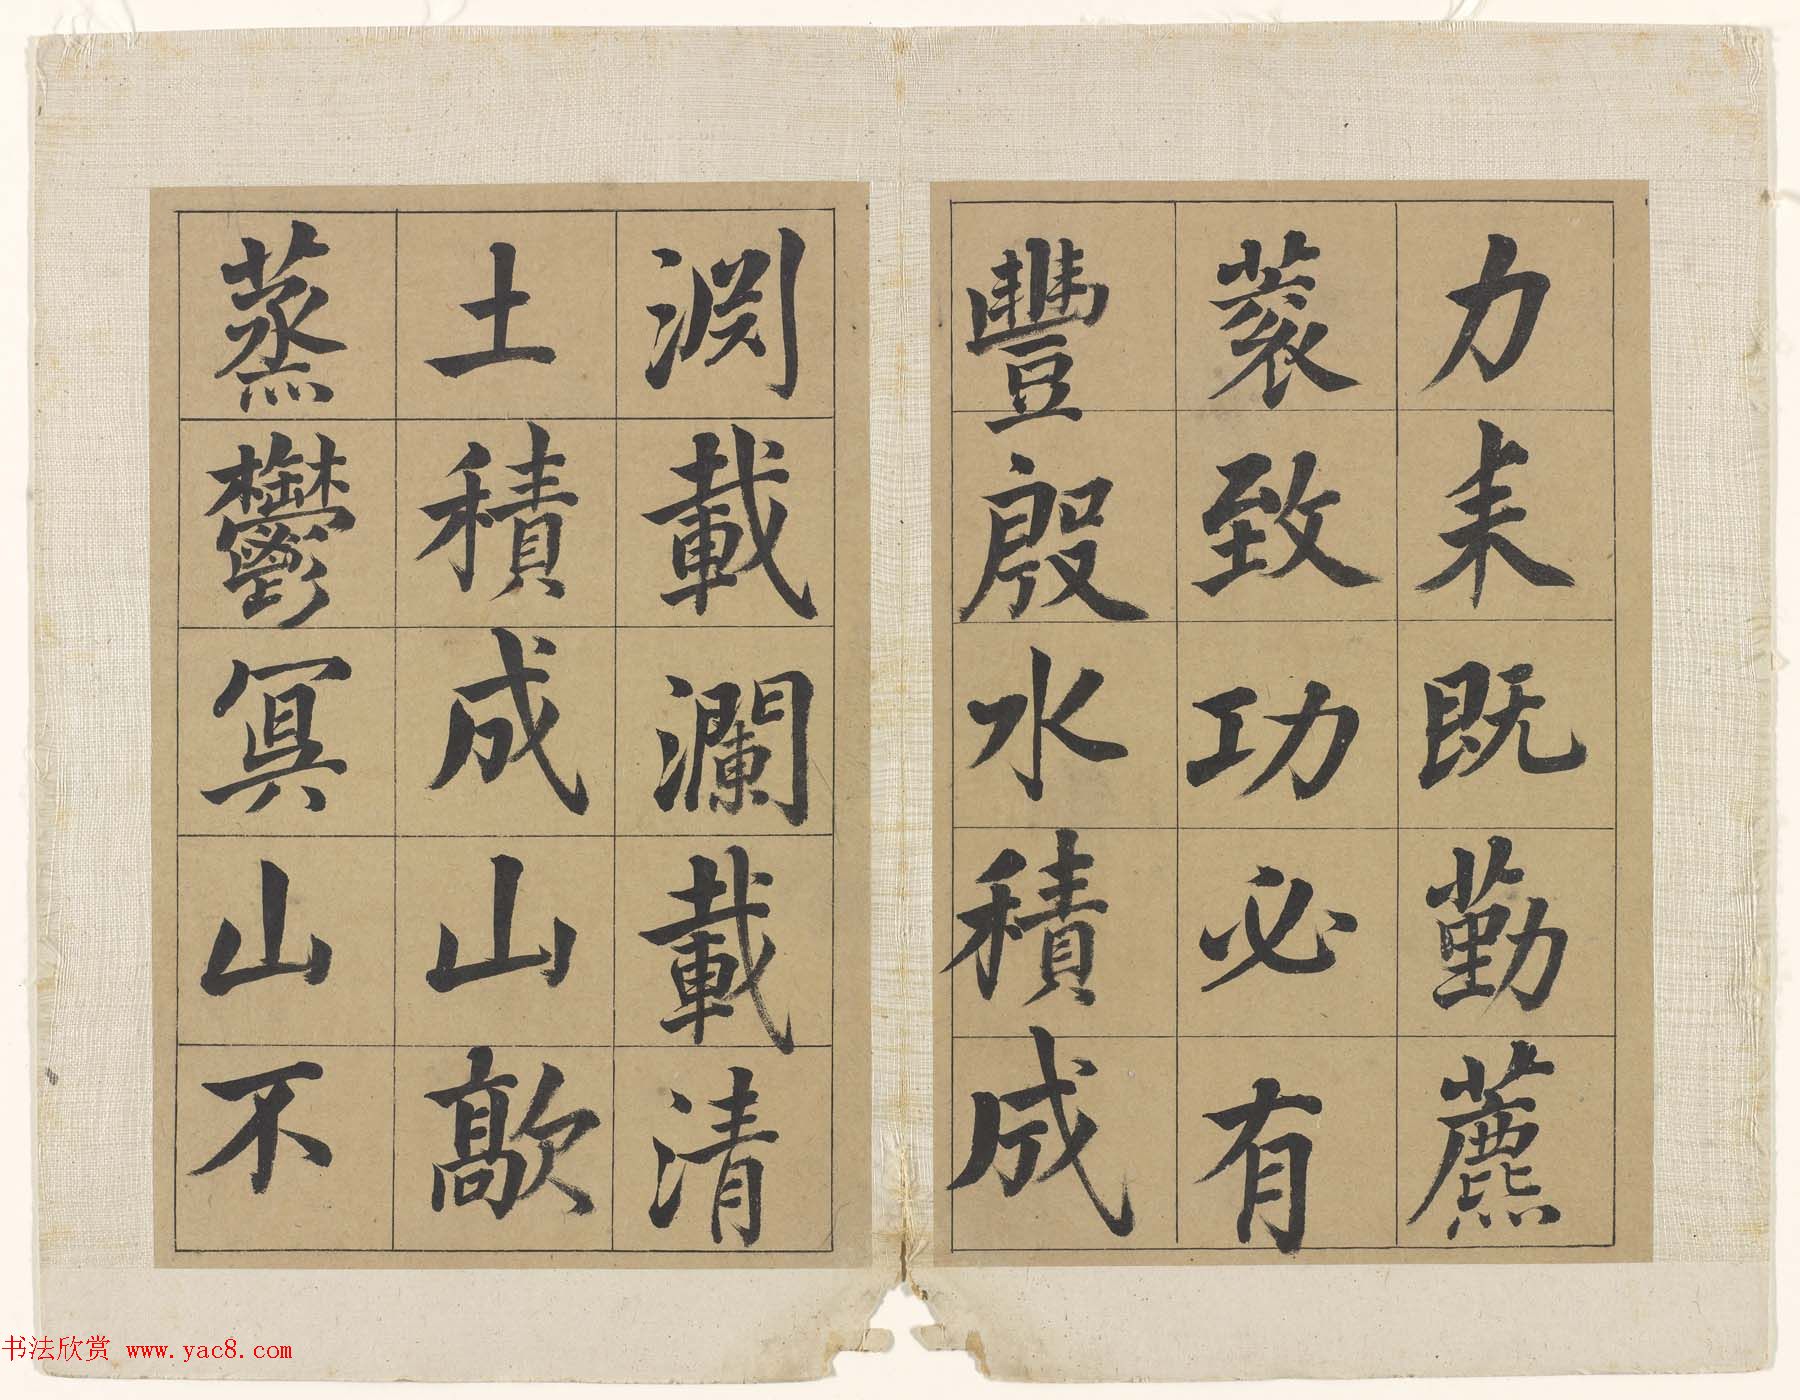 力耒既勤藨
蓘致功必有
豐殷水積成
渊載瀾載清
土積成山歊
蒸鬱冥山不
书法欣赏 www.yac8.com